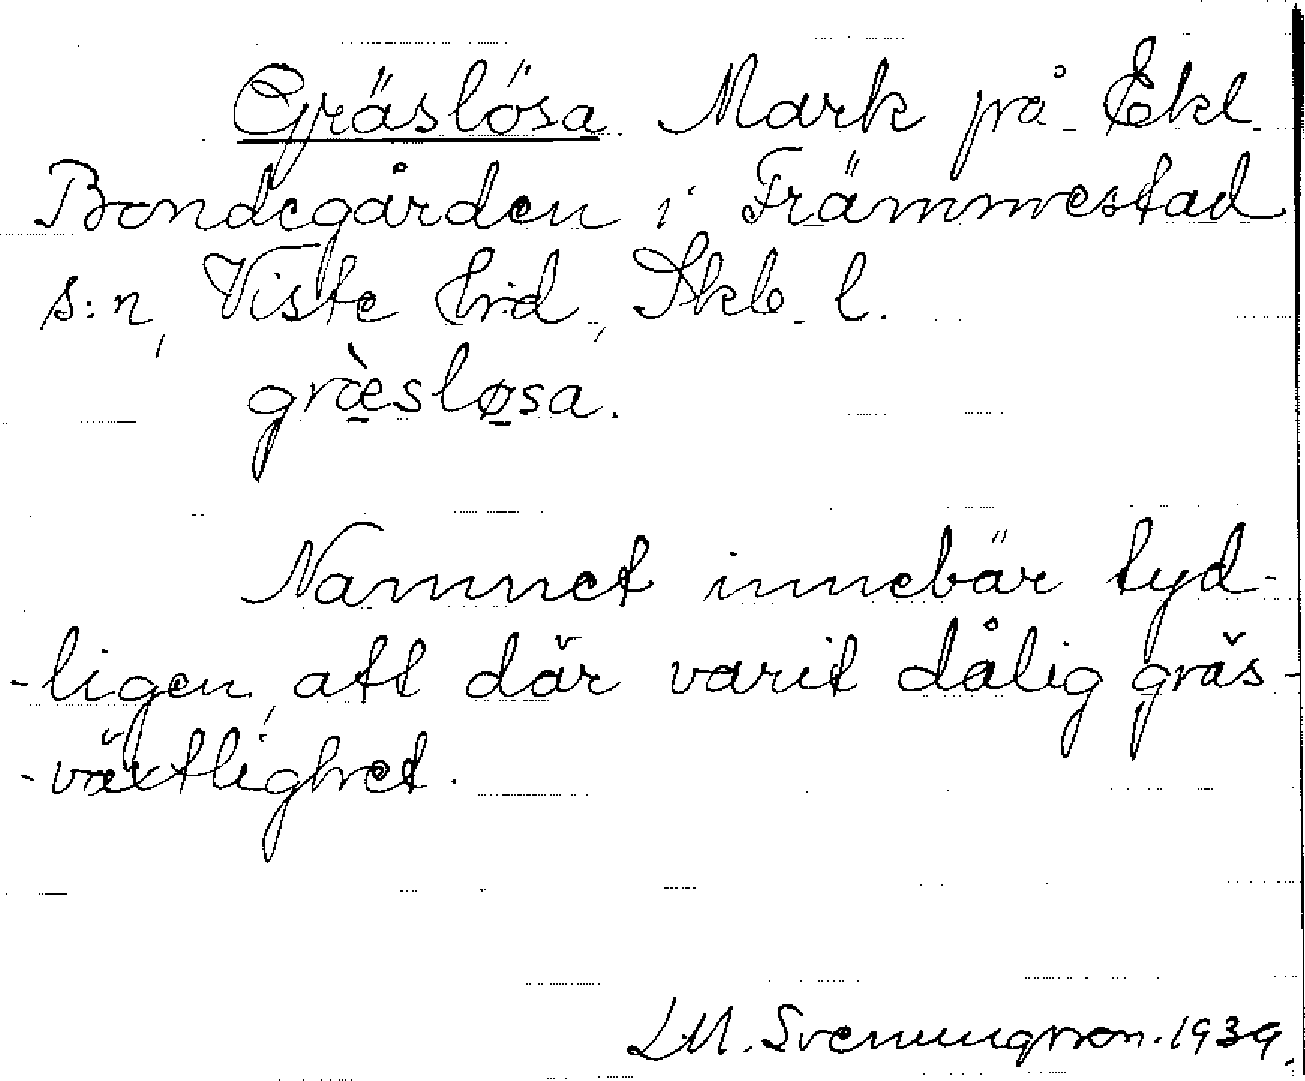 Gräslösa Mark på Ekl.
Bondegården i Främmestad
s:n, Viste hrd, Skb. l.
græ̀sløsa.
Namnet innebär tyd-
-ligen, att där varit dålig gräs-
-växtlighet.
LM. Svenungsson. 1939.